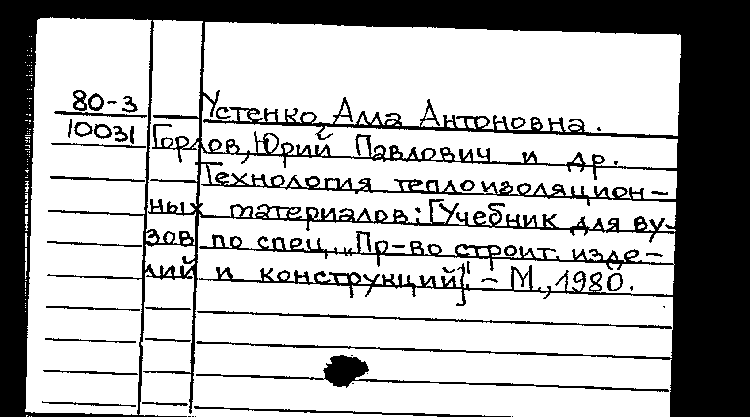 80-3 Устенко, Алла Антоновна.
10031 Горлов, Юрий Павлович и др.
Технология теплоизоляцион-
ных материалов: [Учебник для ву-
зов по спец. „Пр-во строит. изде-
лий и конструкций"]. - М., 1980.